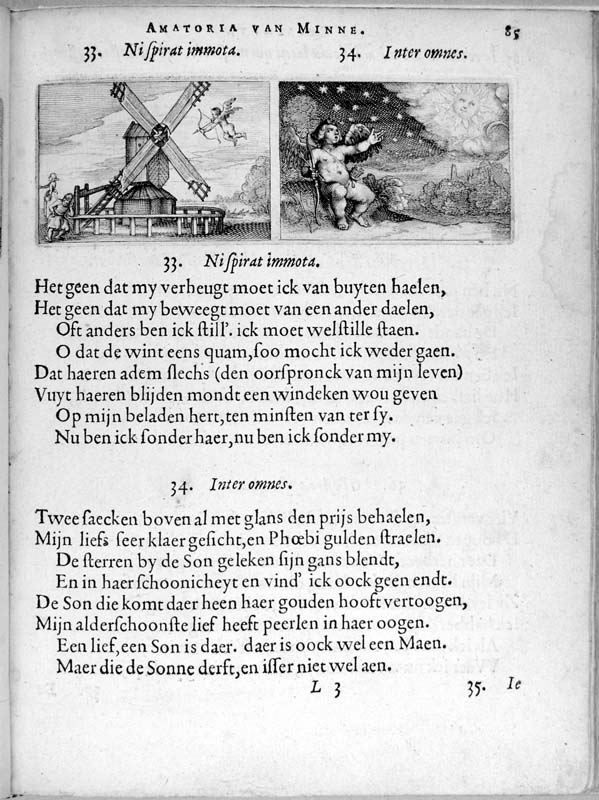 AMATORIA VAN MINNE. 85
33. Ni spirat immota. 34. Inter omnes.
33. Ni spirat immota.
Het geen dat my verheugt moet ick van buyten haelen,
Het geen dat my beweegt moet van een ander daelen,
Oft anders ben ick still'. ick moet wel stille staen.
O dat de wint eens quam, soo mocht ick weder gaen.
Dat haeren adem slechs (den oorspronck van mijn leven)
Vuyt haeren blijden mondt een windeken wou geven
Op mijn beladen hert, ten minsten van ter sy.
Nu ben ick sonder haer, nu ben ick sonder my.
34. Inter omnes.
Twee saecken boven al met glans den prijs behaelen,
Mijn liefs seer klaer gesicht, en Phœbi gulden straelen.
De sterren by de Son geleken sijn gans blendt,
En in haer schoonicheyt en vind' ick oock geen endt.
De Son die komt daer heen haer gouden hooft vertoogen,
Mijn alderschoonste lief heeft peerlen in haer oogen.
Een lief, een Son is daer. daer is oock wel een Maen.
Maer die de Sonne derft, en isser niet wel aen.
L 3 35. Ie